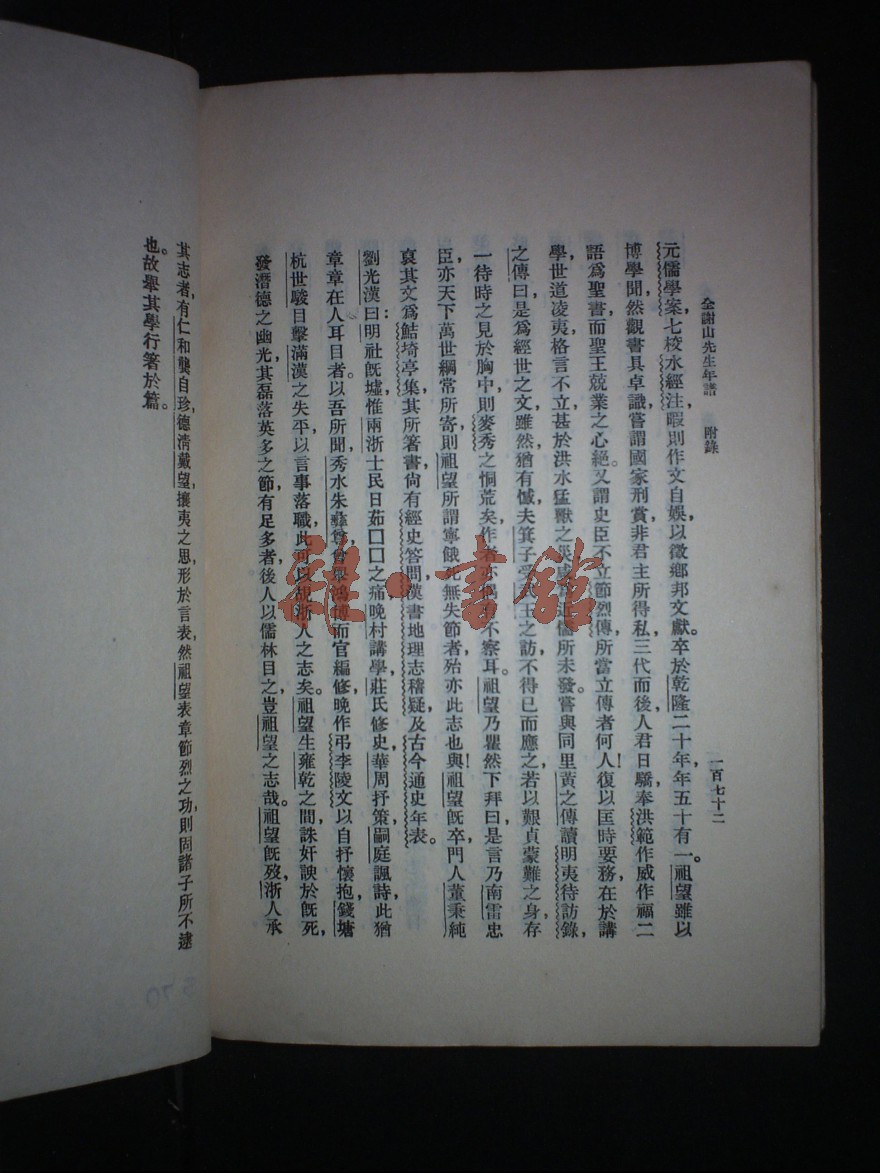 全謝山先生年譜 附錄 一百七十二
元儒學案七校水經注，暇則作文自娛，以徵鄉邦文獻。卒於乾隆二十年，年五十有一。祖望雖以
博學聞，然觀書具卓識，嘗謂國家刑賞，非君主所得私，三代而後，人君日驕，奉洪範作威作福二
語爲聖書，而聖王兢業之心絕。又謂史臣不立節烈傳，所當立傳者何人！復以匡時要務，在於講
學，世道凌夷，格言不立，甚於洪水猛獸之災，咸近儒所未發。嘗與同里黃之傳讀明夷待訪錄，
之傳曰：是爲經世之文，雖然猶有憾，夫箕子受武王之訪，不得已而應之，若以艱貞蒙難之身，存
一待時之見於胸中，則麥秀之恫荒矣，作者亦偶有不察耳。祖望乃瞿然下拜曰：是言乃南雷忠
臣，亦天下萬世綱常所寄，則祖望所謂寧餓死無失節者，殆亦此志也與！祖望旣卒，門人董秉純
裒其文爲鮚埼亭集，其所著書，尙有經史答問，漢書地理志稽疑，及古今通史年表。
劉光漢曰：明社旣墟，惟兩浙士民日茹囗囗之痛，晚村講學，莊氏修史，華周抒策，嗣庭諷詩，此猶
章章在人耳目者。以吾所聞，秀水朱彝尊曾舉鴻博而官編修，晚作弔李陵文以自抒懷抱，錢塘
杭世駿目擊滿漢之失平，以言事落職，此可以覘浙人之志矣。祖望生雍乾之間，誅奸諛於旣死，
發潛德之幽光，其磊落英多之節，有足多者，後人以儒林目之，豈祖望之志哉。祖望旣歿，浙人承
其志者，有仁和龔自珍，德淸戴望，攘夷之思，形於言表，然祖望表章節烈之功，則固諸子所不逮
也。故舉其學行箸於篇。
書館